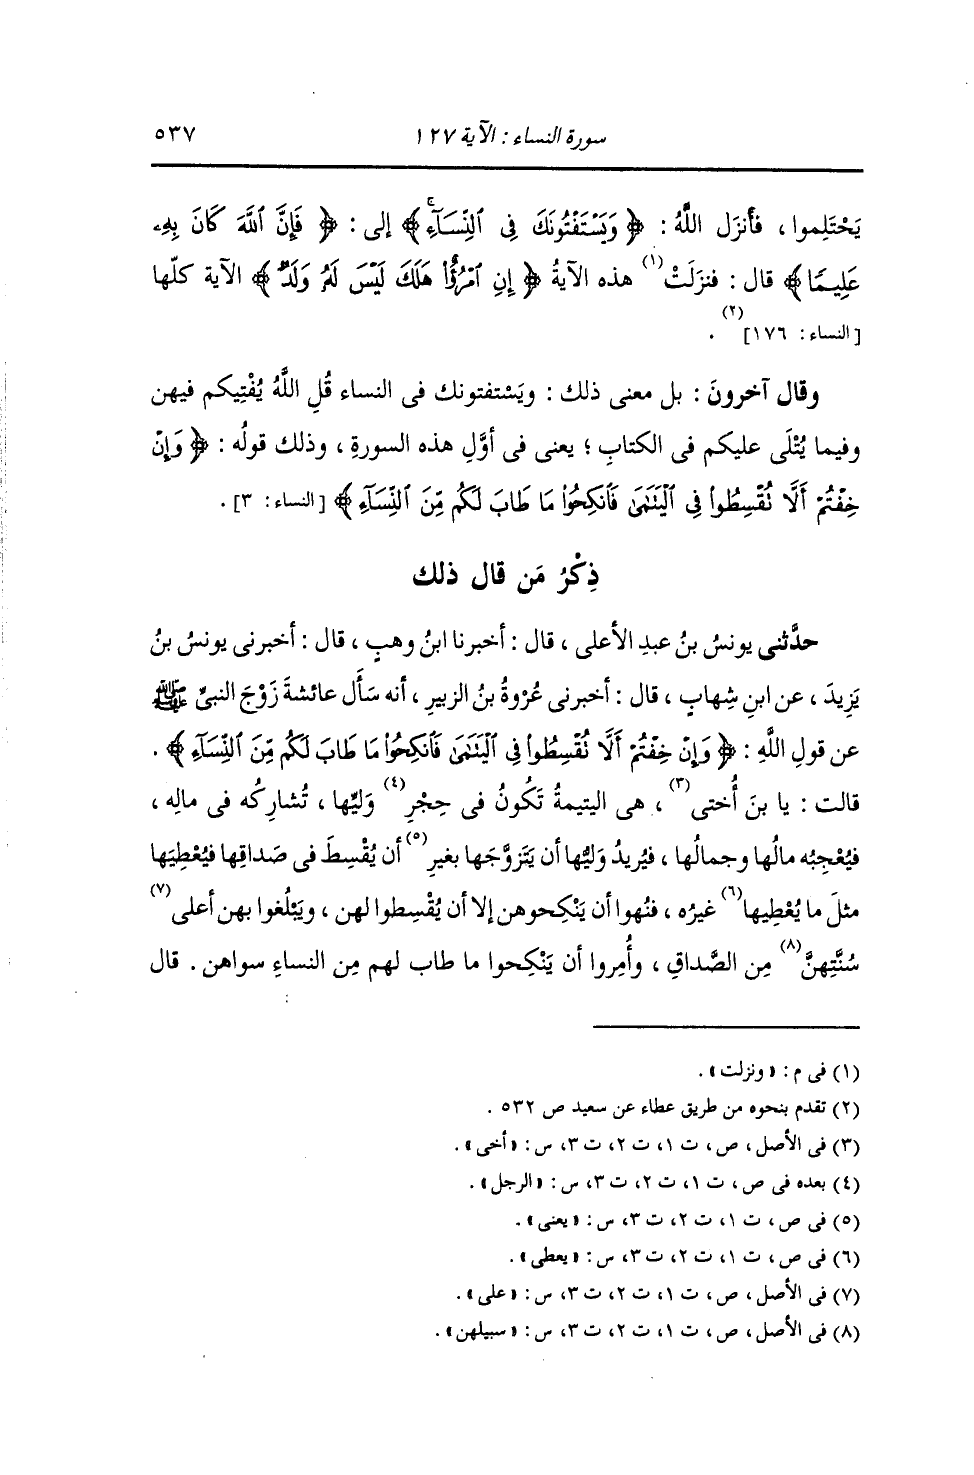 سورة النساء : الآية ١٢٧
٥٣٧
يَحْتَلِموا ، فأنزَل اللَّهُ : ﴿ وَيَسْتَفْتُونَكَ فِي ٱلنِّسَآءِۖ ﴾ إلى : ﴿ فَإِنَّ ٱللَّهَ كَانَ بِهِۦ
عَلِيمًا ﴾ قال : فنزلَتْ(١) هذه الآيةُ ﴿ إِنِ ٱمْرُؤٌا۟ هَلَكَ لَيْسَ لَهُۥ وَلَدٌ ﴾ الآية كلّها
[ النساء : ١٧٦](٢) .
وقال آخرونَ : بل معنى ذلك : ويَسْتفتونك فى النساء قُلِ اللَّهُ يُفْتِيكم فيهن
وفيما يُتْلَى عليكم فى الكتابِ ؛ يعنى فى أوَّلِ هذه السورةِ ، وذلك قولُه : ﴿ وَإِنْ
خِفْتُمْ أَلَّا تُقْسِطُوا۟ فِى ٱلْيَتَٰمَىٰ فَٱنكِحُوا۟ مَا طَابَ لَكُم مِّنَ ٱلنِّسَآءِ ﴾ [ النساء : ٣] .
ذِكْرُ مَن قال ذلك
حدَّثنى يونسُ بنُ عبدِ الأعلى ، قال : أخبرنا ابنُ وهبٍ ، قال : أخبرنى يونسُ بنُ
يَزِيدَ ، عن ابنِ شِهابٍ ، قال : أخبرنى عُرْوةُ بنُ الزبيرِ ، أنه سَأَل عائشةَ زَوْجَ النبىِّ ﷺ
عن قولِ اللَّهِ : ﴿ وَإِنْ خِفْتُمْ أَلَّا تُقْسِطُوا۟ فِى ٱلْيَتَٰمَىٰ فَٱنكِحُوا۟ مَا طَابَ لَكُم مِّنَ ٱلنِّسَآءِ ﴾ .
قالت : يا بنَ أُختى(٣) ، هى اليتيمةُ تَكُونُ فى حِجْرِ(٤) وَليِّها ، تُشاركُه فى مالِه ،
فيُعْجِبُه مالُها وجمالُها ، فيُريدُ وَليُّها أن يَتَزوَّجَها بغيرِ(٥) أن يُقْسِطَ فى صَداقِها فيُعْطِيَها
مثلَ ما يُعْطِيها(٦) غيرُه ، فنُهوا أن يَنْكِحوهن إلا أن يُقْسِطوا لهن ، ويَبْلُغوا بهن أعلى(٧)
سُنَّتِهنَّ(٨) مِن الصَّداقِ ، وأُمِروا أن يَنْكِحوا ما طاب لهم مِن النساءِ سواهن . قال
(١) فى م : « ونزلت » .
(٢) تقدم بنحوه من طريق عطاء عن سعيد ص ٥٣٢ .
(٣) فى الأصل ، ص ، ت ١، ت ٢، ت ٣، س : « أخى » .
(٤) بعده فى ص ، ت ١، ت ٢، ت ٣، س : « الرجل » .
(٥) فى ص ، ت ١، ت ٢، ت ٣، س : « يعنى » .
(٦) فى ص ، ت ١، ت ٢، ت ٣، س : « يعطى » .
(٧) فى الأصل ، ص ، ت ١، ت ٢، ت ٣، س : « على » .
(٨) فى الأصل ، ص ، ت ١، ت ٢، ت ٣، س : « سبيلهن » .